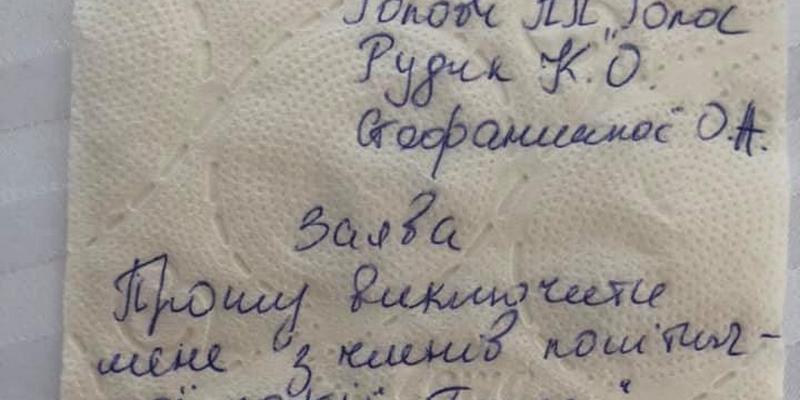 Голові ПП "Голос
Рудик К.О.
Стефанишиної О.А.
Заява
Прошу виключити
мене з членів політич-
ної партії "Голос"